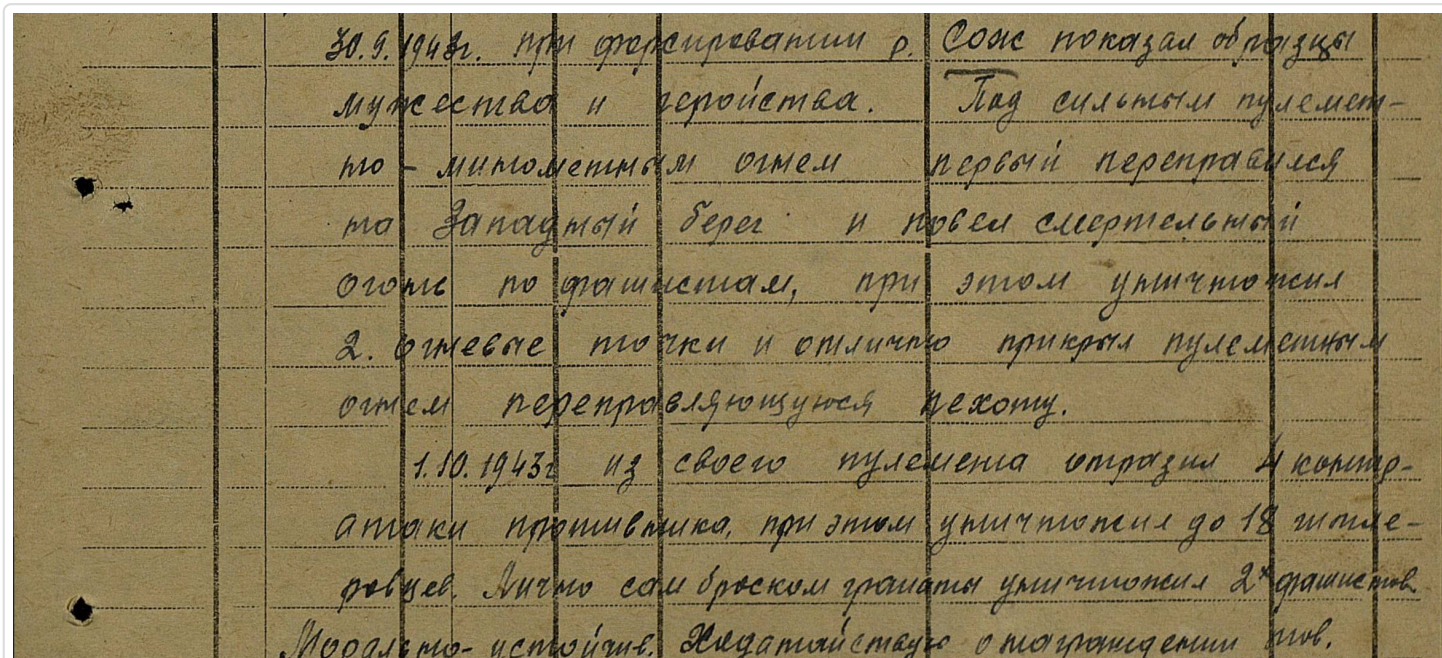 30.9.1943г. при форсировании р. Сож показал образцы
мужества и геройства. Под сильным пулемет-
но - минометным огнем первый переправился
на Западный берег и повел смертельный
огонь по фашистам, при этом уничтожил
2. огневые точки и отлично прикрыл пулеметным
огнем переправляющуюся пехоту.
1.10.1943г из своего пулемета отразил 4 контр-
атаки противника, при этом уничтожил до 18 гитле-
ровцев. Лично сам броском гранаты уничтожил 2х фашистов
Морально-устойчив. Ходатайствую о награждении тов.